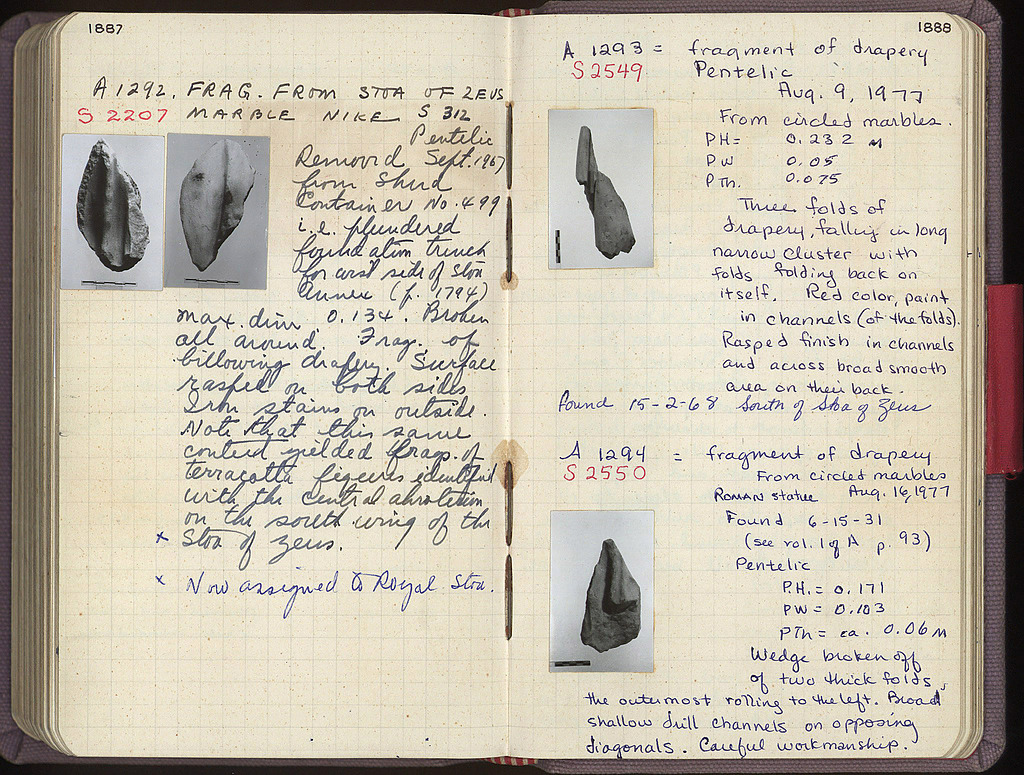 1887
A 1292. FRAG. FROM STOA OF ZEUS
S 2207 MARBLE NIKE S 312
Pentelic
Removed Sept. 1967
from Sherd
Container No. 499
i.e. plundered
foundation trench
for west side of Stoa
Annex (p. 1794)
max. dim 0.134. Broken
all around. Frag. of
billowing drapery. Surface
rasped on both sides
Iron stains on outside.
Note that this same
context yielded frags. of
terracotta figures identified
with the central akroterion
on the south wing of the
x Stoa of Zeus.
x Now assigned to Royal Stoa.
1888
A 1293 = fragment of drapery
S 2549 Pentelic
Aug. 9, 1977
From circled marbles.
PH= 0.232 M
PW 0.05
PTh. 0.075
Three folds of
drapery, falling in long
narrow cluster with
folds folding back on
itself. Red color, paint
in channels (of the folds).
Rasped finish in channels
and across broad smooth
area on their back.
found 15-2-68 South of Stoa of Zeus
A 1294 = fragment of drapery
S 2550 From circled marbles
ROMAN statue Aug. 16, 1977
Found 6-15-31
(see vol. 1 of A p. 93)
Pentelic
P.H. = 0.171
PW = 0.103
PTh = ca. 0.06 M
Wedge broken off
of two thick folds,
the outermost rolling to the left. Broad
shallow drill channels on opposing
diagonals. Careful workmanship.